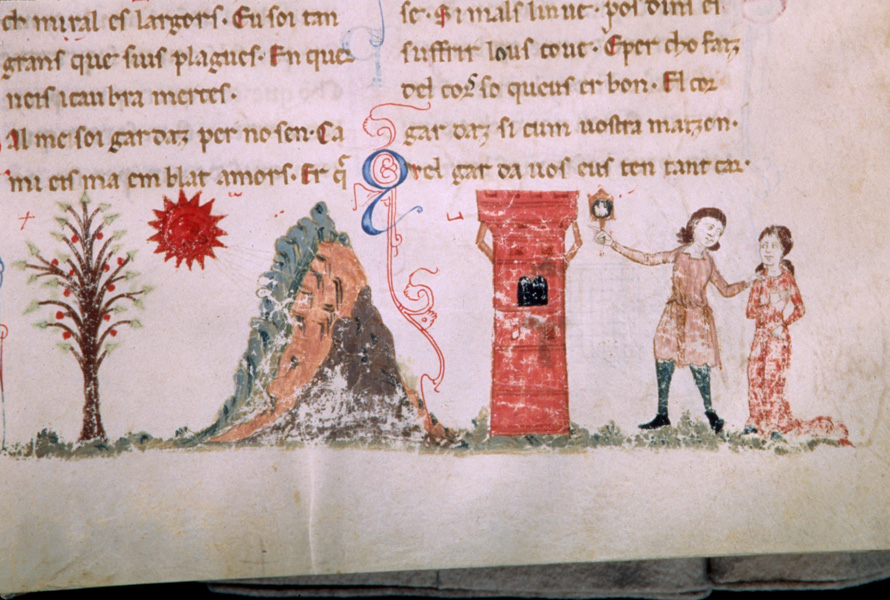 ch miral es largors. Eu soi tan
grans que suis plagues. En que
neis i cau bra merces.
Al me soi gardaz per no sen. Ca
mi eis ma emblat amors. Er q̃
se. Si mals linuc. pois dim ei
suffrir lous cout. Eper cho faiz
del cor so queus er bon. El cor
gardaz si cum uostra maizen.
Qel garda uos eus ten tant car.